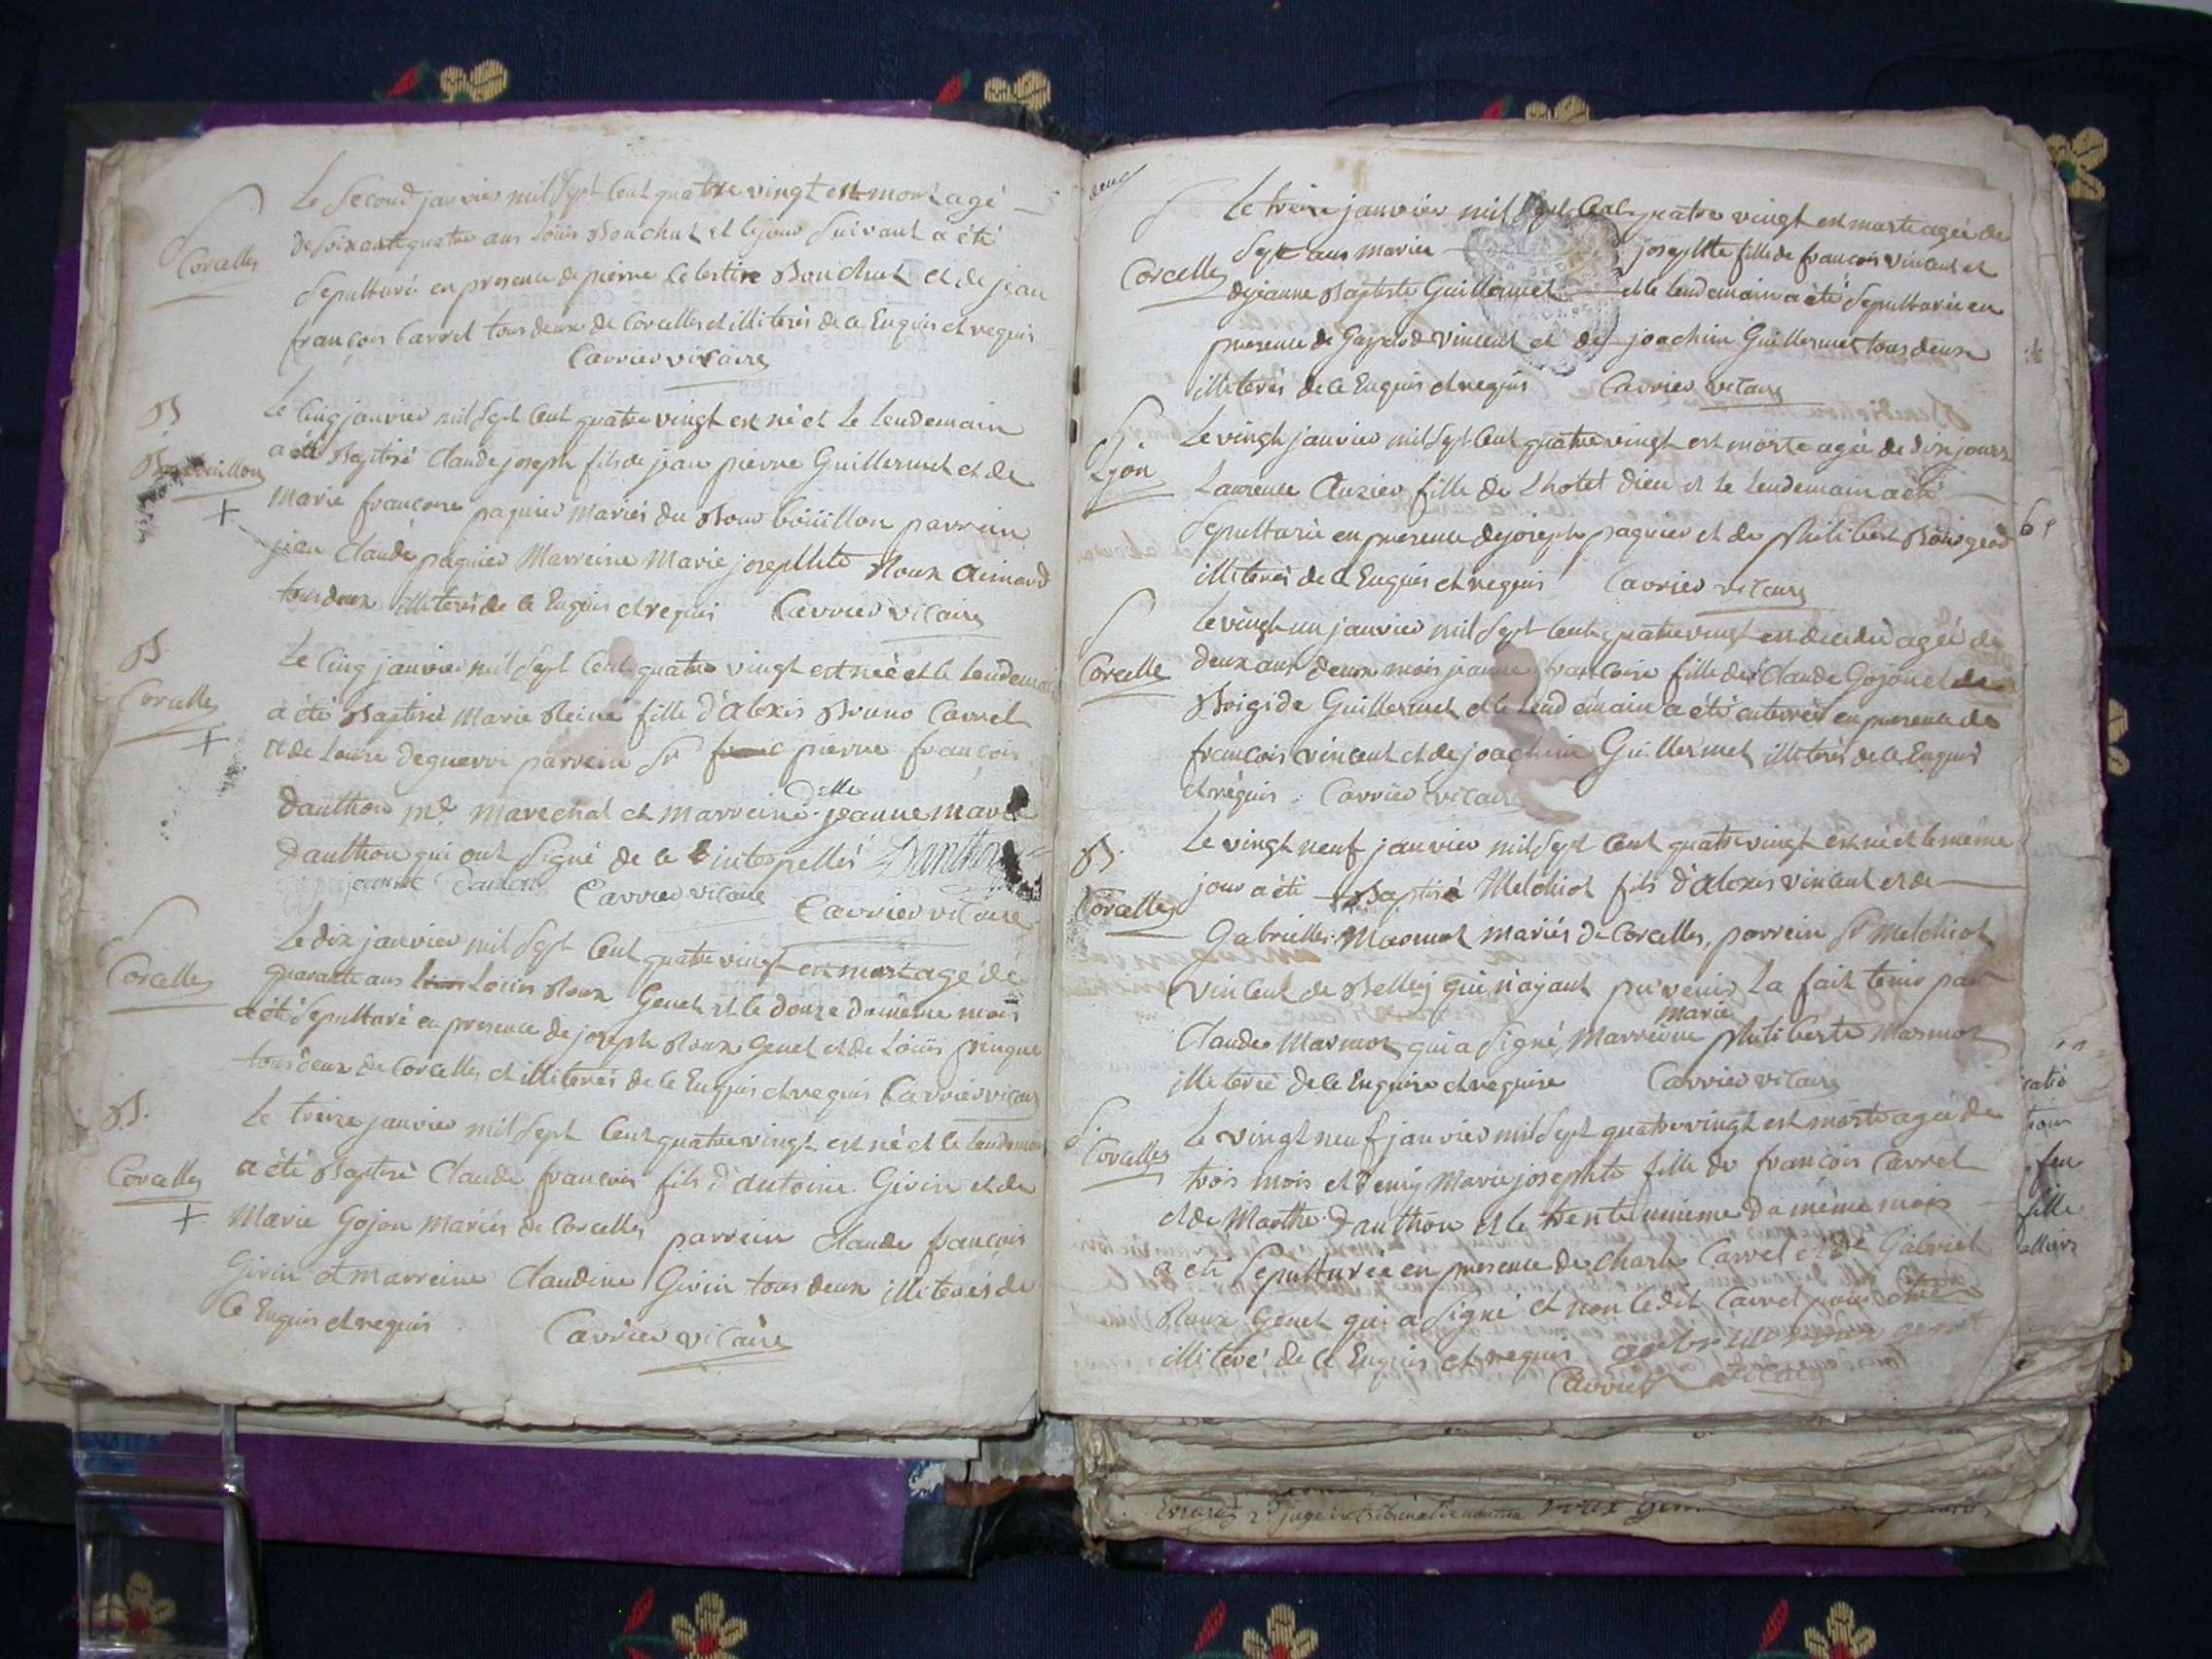 S
Corcelles
Le Second janvier mil Sept Cent quatre vingt est mort agé
de soixante quatre ans Loüis Bouchut et le jour Suivant a été
Sepulturé en presence de pierre Celestin Bouchut et de jean
françois Carrel tous deux de Corcelles et illiterés de ce Enquis et requis
Carrier vicaire
B
Le Cinq janvier mil Sept Cent quatre vingt est né et Le Lendemain
a été Baptisé Claude joseph fils de jean pierre Guillermet et de
Marie francoise paquier mariés du bouillon parrein
jean Claude paquier Marreine Marie josephte Roux aimard
tous deux illiterés de ce Enquis et requis Carrier vicaire
B
Corcelles
Le Cinq janvier mil Sept Cent quatre vingt est née et le Lendemain
a été Baptisée Marie Reine fille d'alexis Bruno Carrel
et de Louise deguerre parrein Sr pierre françois
Dauthon md marechal et marreine delle jeanne marie
Dauthon qui ont Signé de ce interpellés Dauthon
jeanne Dauton Carrier vicaire Carrier vicaire
S
Corcelles
Le dix janvier mil Sept Cent quatre vingt est mort agé de
quarante ans Loüis Roux Genet et le douze du même mois
a été Sepulturé en presence de joseph Roux Genet et de Loüis pingue
tous deux de Corcelles et illiterés de ce Enquis et requis Carrier vicaire
B.
Corcelles
Le treize janvier mil Sept Cent quatre vingt est né et le lendemain
a été Baptisé Claude francois fils d'antoine Girin et de
Marie Gojon mariés de Corcelles parrein Claude françois
Girin et marreine Claudine Girin tous deux illiterés de
ce Enquis et requis Carrier vicaire
S
Corcelles
Le treize janvier mil Sept Cent quatre vingt est morte agée de
Sept ans marie josephte fille de francois vincent et
de jeanne Baptiste Guillermet et le lendemain a été Sepulturée en
presence de Gaspard vincent et de joachim Guillermet tous deux
illiterés de ce Enquis et requis Carrier vicaire
S.
Lyon
Le vingt janvier mil Sept Cent quatre vingt est morte agée de dix jours
Laurence Auzier fille de Lhotel Dieu et le Lendemain a été
Sepulturée en presence de joseph paquier et de philibert
illiterés de ce Enquis et requis Carrier vicaire
S
Corcelle
Le vingt un janvier mil Sept Cent quatre vingt est decedée agée de
deux ans deux mois jeanne francoise fille de Claude Gojon et de
Brigide Guillermet et le Lendemain a été enterrée en presence de
francois vincent et de joachim Guillermet illiterés de ce Enquis
et requis. Carrier vicaire
B.
Corcelles
Le vingt neuf janvier mil Sept Cent quatre vingt est né et le même
jour a été Baptisé Melchiol fils d'alexis vincent et de
Gabrielle Marmot mariés de Corcelles, parrein Sr melchiol
vincent de Belley qui n'ayant pu venir La fait tenir par
Claude Marmot qui a Signé, Marreine marie philiberte Marmot
illiterée de ce Enquise et requise Carrier vicaire
S.
Corcelles
Le vingt neuf janvier mil Sept quatre vingt est morte agée de
trois mois et demy Marie josephte fille de françois Carrel
et de Marthe Dauthon et le trente unieme du même mois
a été Sepulturée en presence de Charle Carrel et de Gabriel
Roux Genet qui a Signé et non le dit Carrel pour être
illiteré de ce Enquis et requis
Carrier vicaire